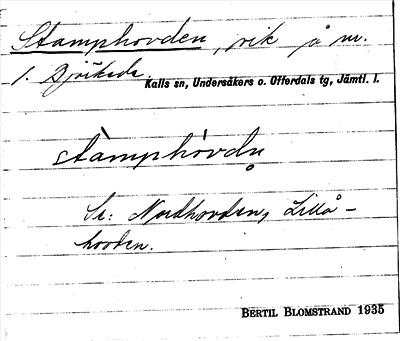 Stamphovden, vik å nv.
/. Björkede.
Kalls sn, Undersåkers o. Offerdals tg, Jämtl. l.
stàmphòvdn̥
Se: Nordhovden, Lillå-
hovden.
BERTIL BLOMSTRAND 1935